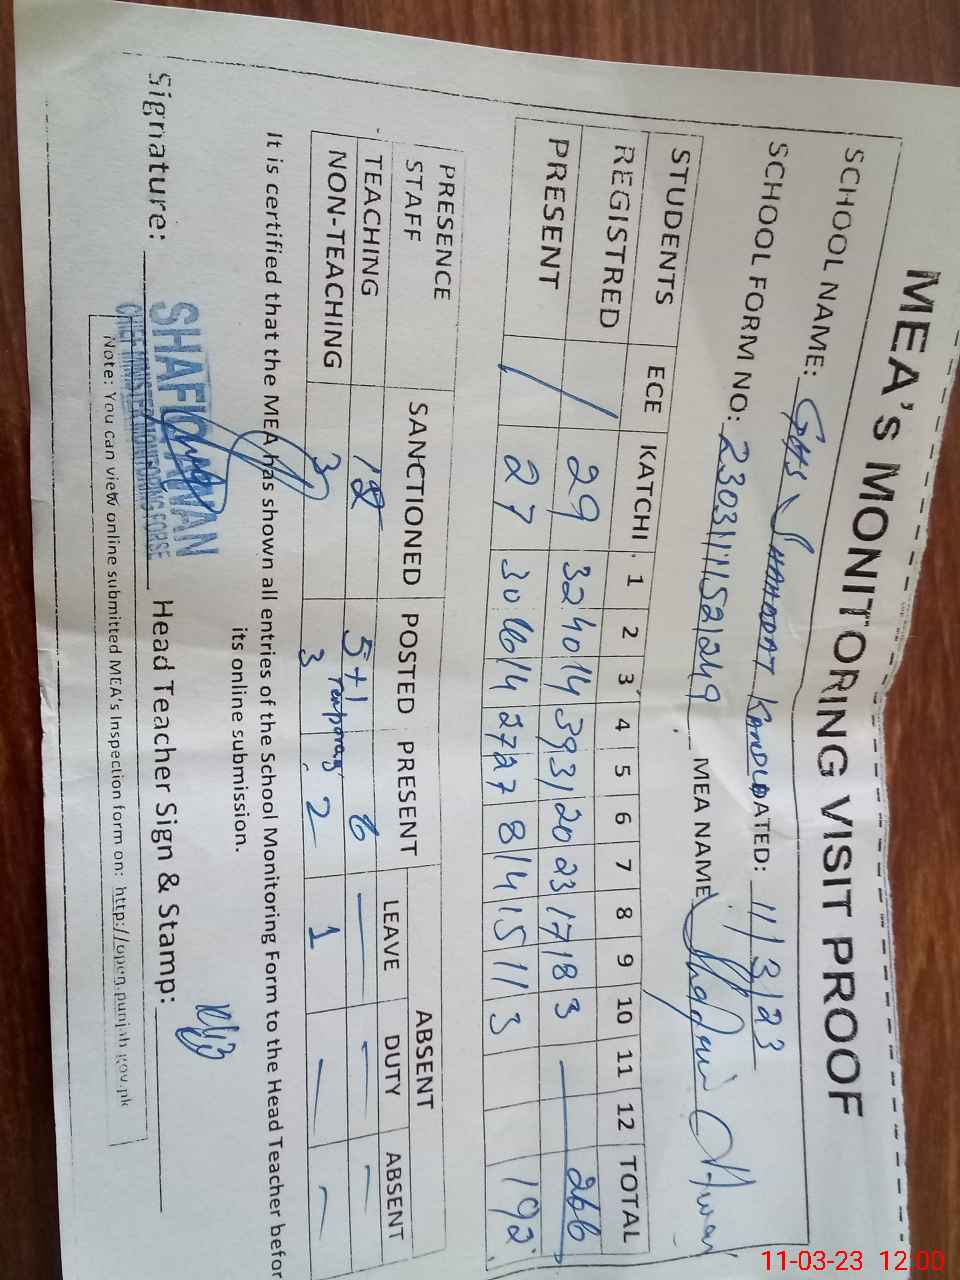 MEA'S MONITORING VISIT PROOF
SCHOOL NAME: GHS SHAHADAT KANDLA DATED: 11/3/23
SCHOOL FORM NO: 2303111521249 MEA NAME Awan
STUDENTS ECE KATCHI 1 2 3 4 5 6 7 8 9 10 11 12 TOTAL
REGISTRED / 29 32 40 14 39 31 20 23 17 18 3 — 266
PRESENT 27 30 16 14 27 27 8 14 15 11 3 192
PRESENCE STAFF SANCTIONED POSTED PRESENT ABSENT
LEAVE DUTY ABSENT
TEACHING 12 5+1 temporary 6 — — —
NON-TEACHING 3 3 2 1 — —
It is certified that the MEA has shown all entries of the School Monitoring Form to the Head Teacher befor
its online submission.
Signature: Head Teacher Sign & Stamp:
SHAFI AWAN
CHIEF MINISTER MONITORING FORSE
Note: You can view online submitted MEA's Inspection form on: http://open.punjab.gov.pk
11-03-23 12:00